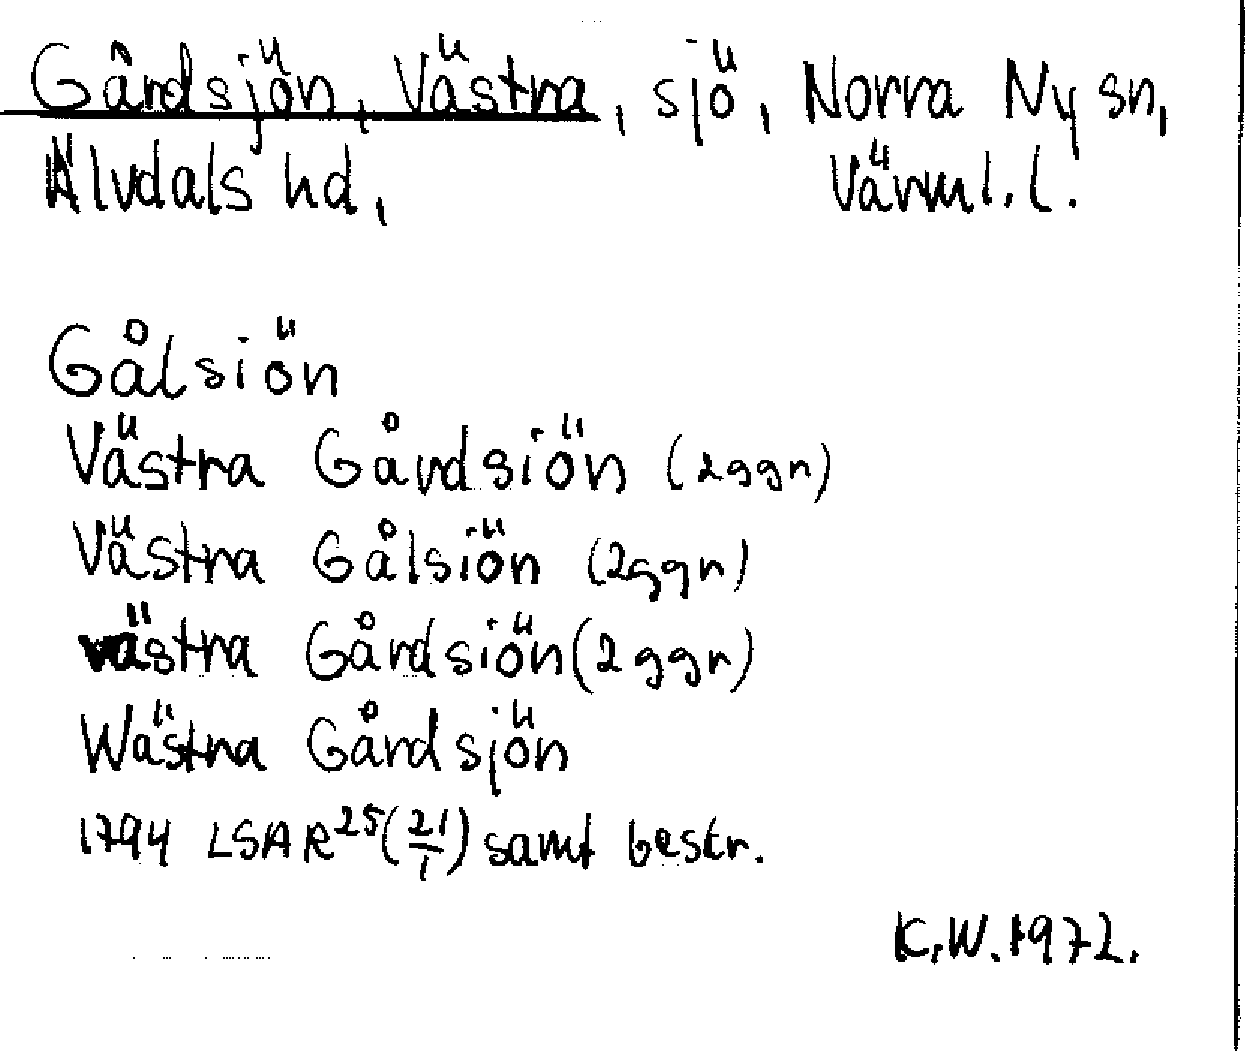 Gårdsjön, Västra, sjö, Norra Ny sn,
Älvdals hd, Värml. l.
Gålsiön
Västra Gårdsiön (2ggr)
Västra Gålsiön (2ggr)
västra Gårdsiön (2ggr)
Wästra Gårdsjön
1794 LSA R25(21/1) samt beskr.
K.W. 1972.